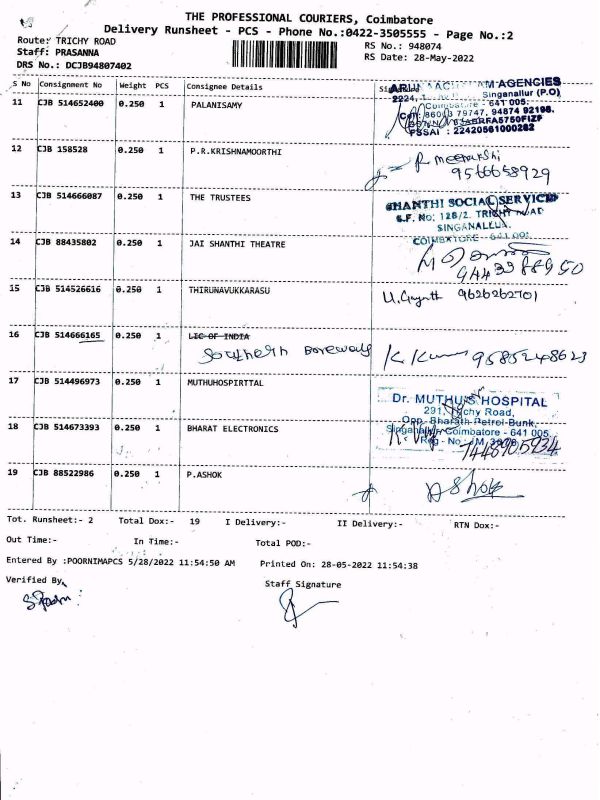 THE PROFESSIONAL COURIERS, Coimbatore
Delivery Runsheet - PCS - Phone No.:0422-3505555 - Page No.:2
Route: TRICHY ROAD
RS No.: 948074
Staff: PRASANNA
RS Date: 28-May-2022
DRS No.: DCJB94807402
S No Consignment No Weight PCS Consignee Details
11 CJB 514652400 0.250 1 PALANISAMY
AGENCIES
Singanallur (P.O)
Coimbatore - 641 005.
79747, 94874 92198.
FSSAI : 22420561000262
12 CJB 158528 0.250 1 P.R.KRISHNAMOORTHI
P Meenakshi
9566658929
13 CJB 514666087 0.250 1 THE TRUSTEES
SHANTHI SOCIAL SERVICE
S.F. No: 128/2. TRICHY ROAD
SINGANALLUR,
COIMBATORE - 641 005.
14 CJB 88435802 0.250 1 JAI SHANTHI THEATRE
15 CJB 514526616 0.250 1 THIRUNAVUKKARASU
9626262701
16 CJB 514666165 0.250 1 LIC OF INDIA
Southern Borewells
9585248623
17 CJB 514496973 0.250 1 MUTHUHOSPIRTTAL
Dr. MUTHU'S HOSPITAL
291, Trichy Road,
Opp. Bharath Petrol Bunk,
Singanallur, Coimbatore - 641 005
18 CJB 514673393 0.250 1 BHARAT ELECTRONICS
7448905934
19 CJB 88522986 0.250 1 P.ASHOK
Ashok
Tot. Runsheet:- 2 Total Dox:- 19 I Delivery:- II Delivery:- RTN Dox:-
Out Time:- In Time:- Total POD:-
Entered By :POORNIMAPCS 5/28/2022 11:54:50 AM Printed On: 28-05-2022 11:54:38
Verified By
Staff Signature